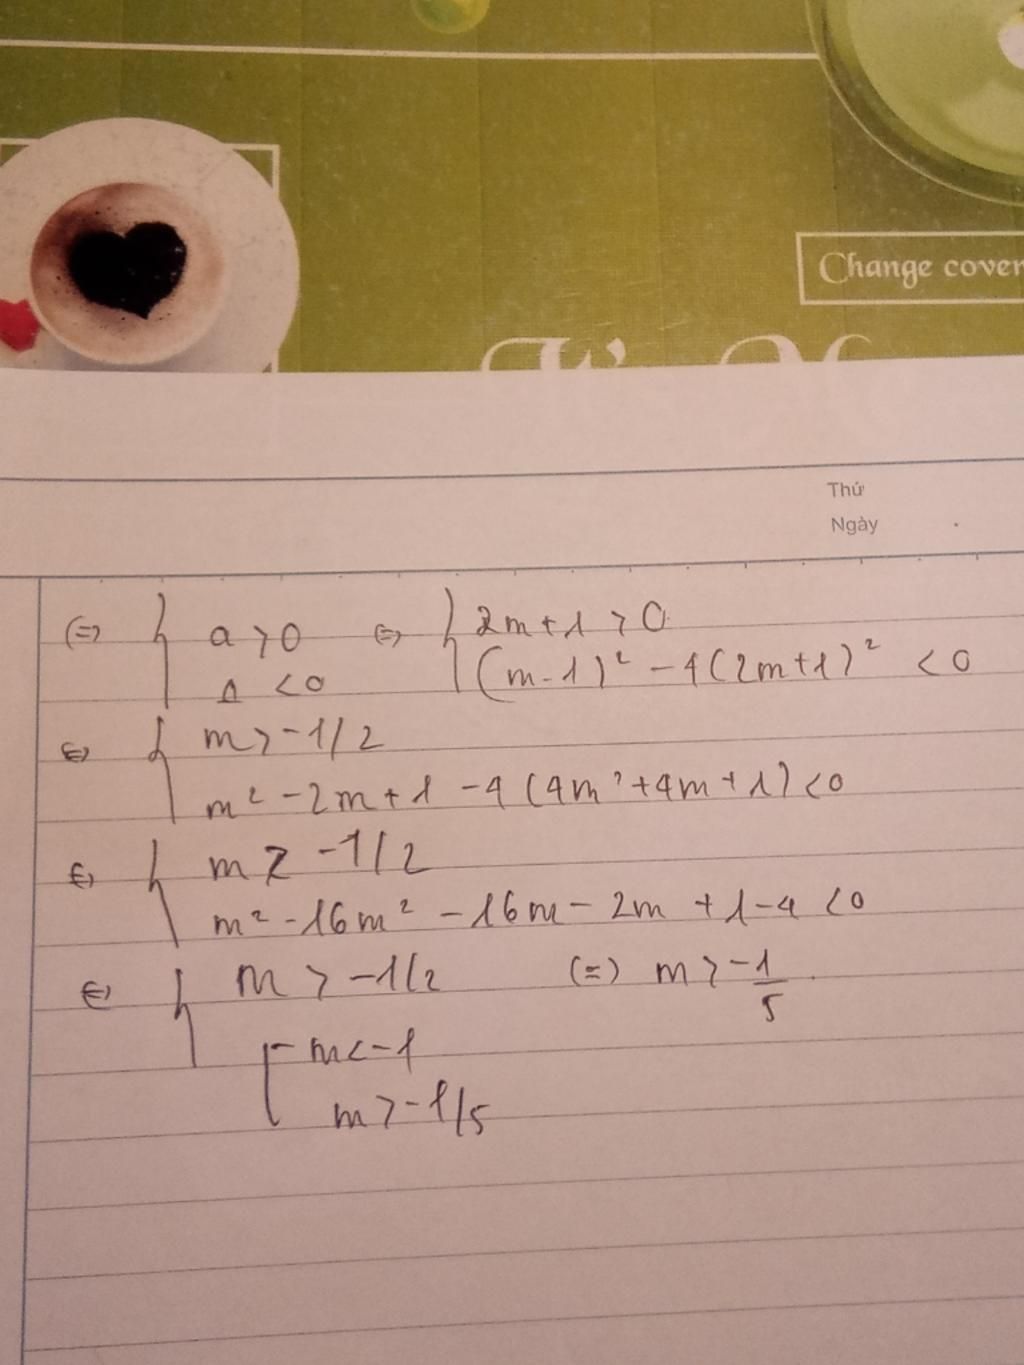 Change cover
Thứ
Ngày
(=) { a > 0 (=) { 2m + 1 > 0
Δ < 0 (m - 1)² - 4(2m+1)² < 0
(=) { m > -1/2
m² - 2m + 1 - 4(4m² + 4m + 1) < 0
(=) { m > -1/2
m² - 16m² - 16m - 2m + 1 - 4 < 0
(=) { m > -1/2 (=) m > -1/5
[ m < -1
m > -1/5